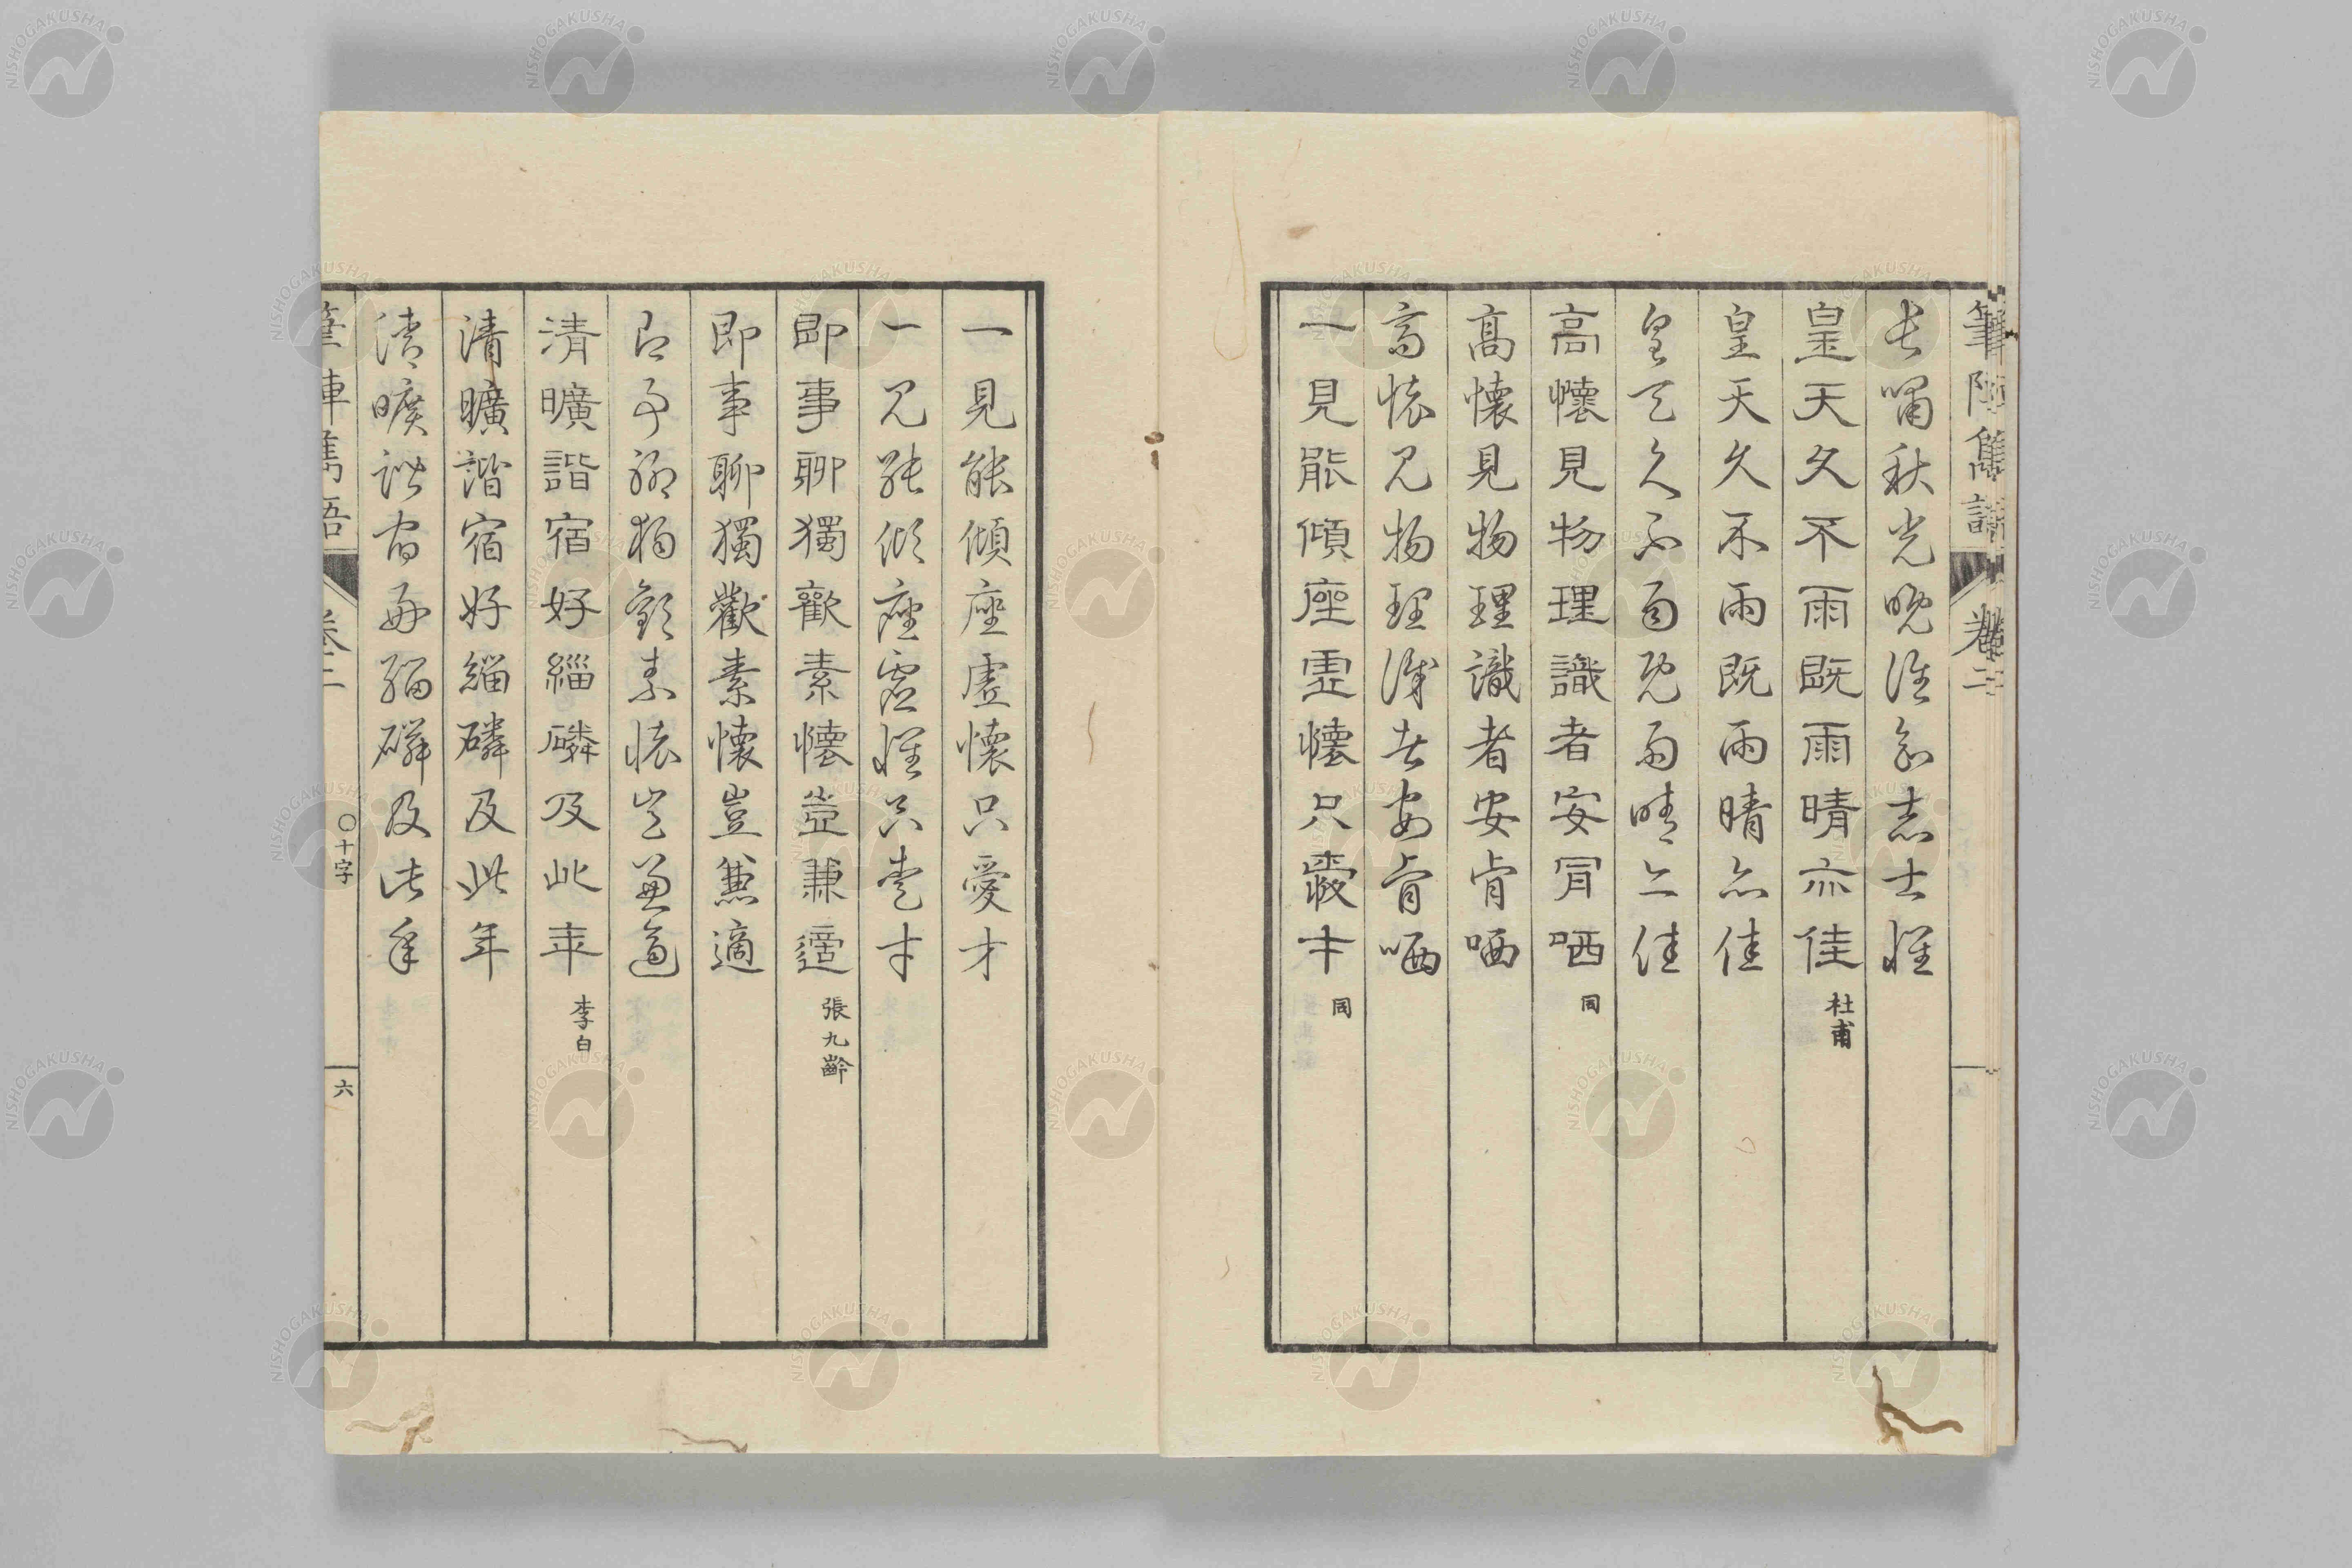 筆陣雋語 卷二
長嘯秋光晚徒知志士懷
皇天久不雨既雨晴亦佳 杜甫
皇天久不雨既雨晴亦佳
皇天久不雨既雨晴亦佳
高懷見物理識者安肯哂 同
高懷見物理識者安肯哂
高懷見物理識者安肯哂
一見能傾座虛懷只愛才 同
一見能傾座虛懷只愛才
一見能傾座虛懷只愛才
即事聊獨歡素懷豈兼適 張九齡
即事聊獨歡素懷豈兼適
即事聊獨歡素懷豈兼適
清曠諧宿好緇磷及此年 李白
清曠諧宿好緇磷及此年
清曠諧宿好緇磷及此年
筆陣雋語 卷二 〇十字 六
NISHOGAKUSHA